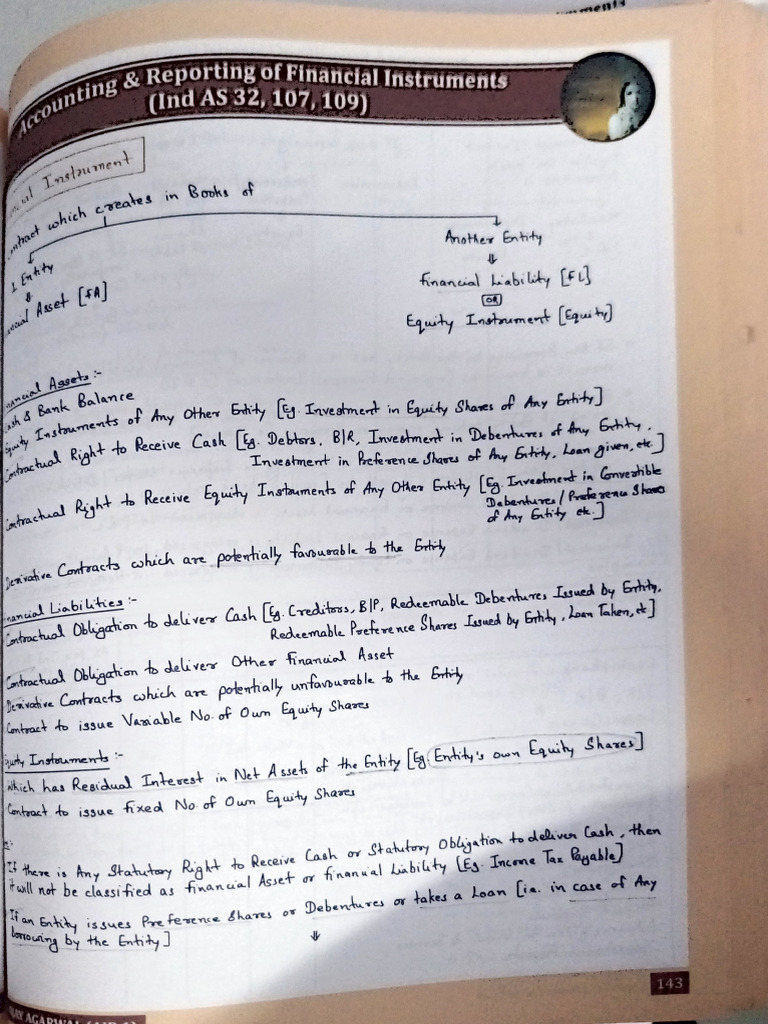 Accounting & Reporting of Financial Instruments
(Ind AS 32, 107, 109)
Instrument
which creates in Books of
1 Entity
Asset [FA]
Another Entity
Financial Liability [FL]
OR
Equity Instrument [Equity]
Assets :-
& Bank Balance
Instruments of Any Other Entity [Eg. Investment in Equity Shares of Any Entity]
Contractual Right to Receive Cash [Eg. Debtors, B/R, Investment in Debentures of Any Entity,
Investment in Preference Shares of Any Entity, Loan given, etc.]
Contractual Right to Receive Equity Instruments of Any Other Entity [Eg. Investment in Convertible
Debentures / Preference Shares
of Any Entity etc.]
Derivative Contracts which are potentially favourable to the Entity
Liabilities :-
Contractual Obligation to deliver Cash [Eg. Creditors, B/P, Redeemable Debentures Issued by Entity,
Redeemable Preference Shares Issued by Entity, Loan Taken, etc]
Contractual Obligation to deliver Other Financial Asset
Derivative Contracts which are potentially unfavourable to the Entity
Contract to issue Variable No. of Own Equity Shares
Instruments :-
which has Residual Interest in Net Assets of the Entity [Eg. Entity's own Equity Shares]
Contract to issue fixed No. of Own Equity Shares
If there is Any Statutory Right to Receive Cash or Statutory Obligation to deliver Cash, then
it will not be classified as financial Asset or financial Liability [Eg. Income Tax Payable]
If an Entity issues Preference Shares or Debentures or takes a Loan [i.e. in case of Any
borrowing by the Entity]
143
AGARWAL